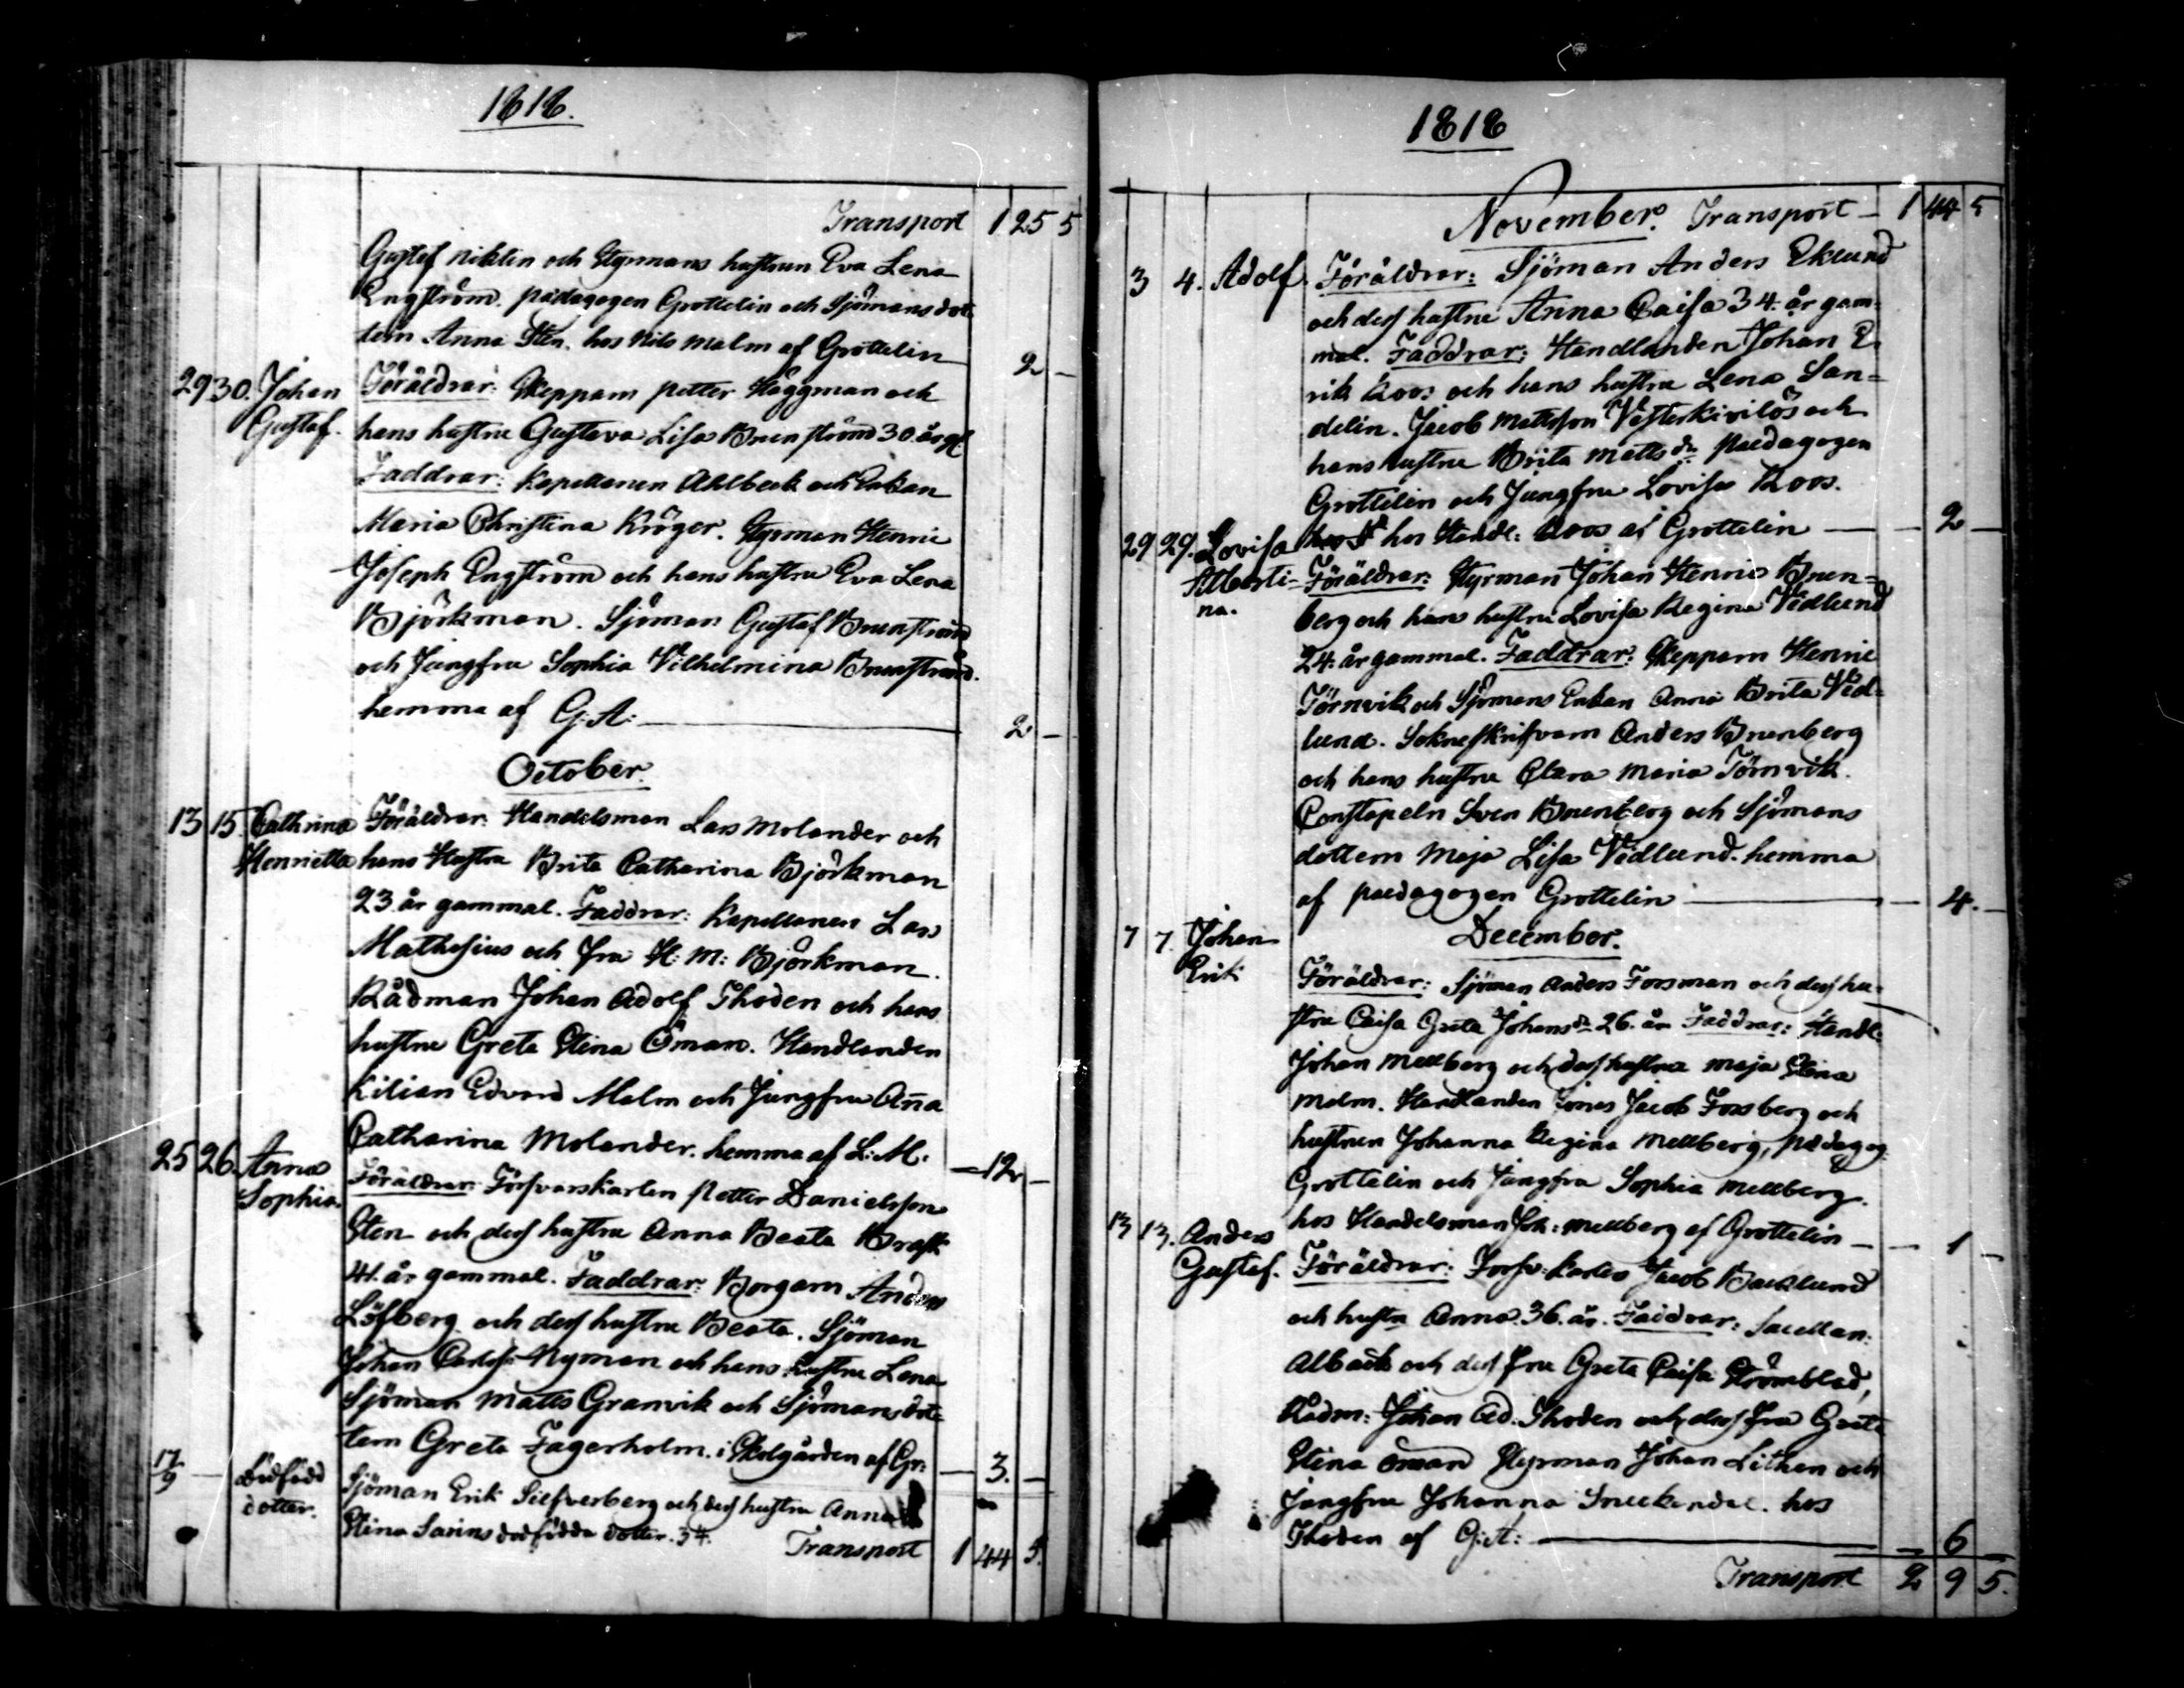 1818.
Transport 1 25 5
Gustaf Niklin och Styrmans hustrun Eva Lena
Engström. pädagogen Grottelin och Sjömansdot-
tern Anna Sten. hos Nils Malm af Grottelin 2 -
29 30. Johan Föräldrar: Skepparn Petter Häggman och
Gustaf. hans hustru Gustava Lisa Brunström 30 år gl.
Faddrar: Kapellanen Ahlbeck och Enkan
Maria Christina Kröger. Styrman Henric
Joseph Engström och hans hustru Eva Lena
Björkman. Sjöman Gustaf Brunström
och Jungfru Sophia Vilhelmina Brunström.
hemma af G: A: 2 -
October.
13 15. Cathrina Föräldrar: Handelsman Lars Molander och
Henrietta hans Hustru Brita Catharina Björkman
23 år gammal. Faddrar: Kapellanen Lars
Mathesius och fru H: M: Björkman.
Rådman Johan Adolf Thoden och hans
hustru Greta Stina Öman. Handlanden
Kilian Edvard Malm och Jungfru Aña
Catharina Molander. hemma af L: M: - 12 -
25 26. Anna Föräldrar: Försvarskarlen Petter Danielsson
Sophia. Sten och dess hustru Anna Beata Brask
41. år gammal. Faddrar: Borgarn Anders
Löfberg och dess hustru Beata. Sjöman
Johan Carlss. Nyman och hans hustru Lena
Sjöman Matts Granvik och Sjömansdot-
tern Greta Fagerholm. i Skolgården af Gr: - 3. -
17/9 - Dödfödd Sjöman Erik Silfverberg och dess hustru Anna
dotter. Stina Sarins dödfödda dotter. 34.
Transport 1 44 5.
1818
November. Transport - 1 44 5
3 4. Adolf. Föräldrar: Sjöman Anders Eklund
och dess hustru Anna Caisa 34. år gam-
mal. Faddrar: Handlanden Johan E-
rik Roos och hans hustru Lena San=
delin. Jacob Mattsson Vesterkivilös och
hans hustru Brita Mattsdr. Paedagogen
Grottelin och Jungfru Lovisa Roos.
hos Handl: Roos af Grottelin - 2 -
29 29. Lovisa
Alberti- Föräldrar: Styrman Johan Henric Brun=
na. berg och hans hustru Lovisa Regina Vidlund
24. år gammal. Faddrar: Skepparn Henric
Törnvik och Sjömans Enkan Anna Brita Vid-
lund. Sokneskrifvarn Anders Brunberg
och hans hustru Clara Maria Törnvik.
Constapeln Sven Brunberg och Sjömans
dottern Maja Lisa Vidlund. hemma
af paedagogen Grottelin - 4. -
December.
7 7. Johan
Erik Föräldrar: Sjöman Anders Forsman och dess hu-
stru Caisa Greta Johansdr. 26. år Faddrar: Handl:
Johan Mellberg och dess hustru Maja Stina
Malm. Handlanden Jonas Jacob Forsberg och
hustrun Johanna Regina Mellberg, Pædagog:
Grottelin och Jungfru Sophia Mellberg.
hos Handelsman Joh: Mellberg af Grottelin - 1 -
13 13. Anders
Gustaf. Föräldrar: Försv: karlen Jacob Backlund
och hustru Anna. 36. år. Faddrar: Sacellan:
Alback och dess fru Greta Caisa Strömblad,
Rådm: Johan Ad. Thoden och dess fru Greta
Stina Öman Styrman Johan Lithen och
Jungfru Johanna Sneckendal. hos
Thoden af G: A: - 6
Transport 2 9 5.